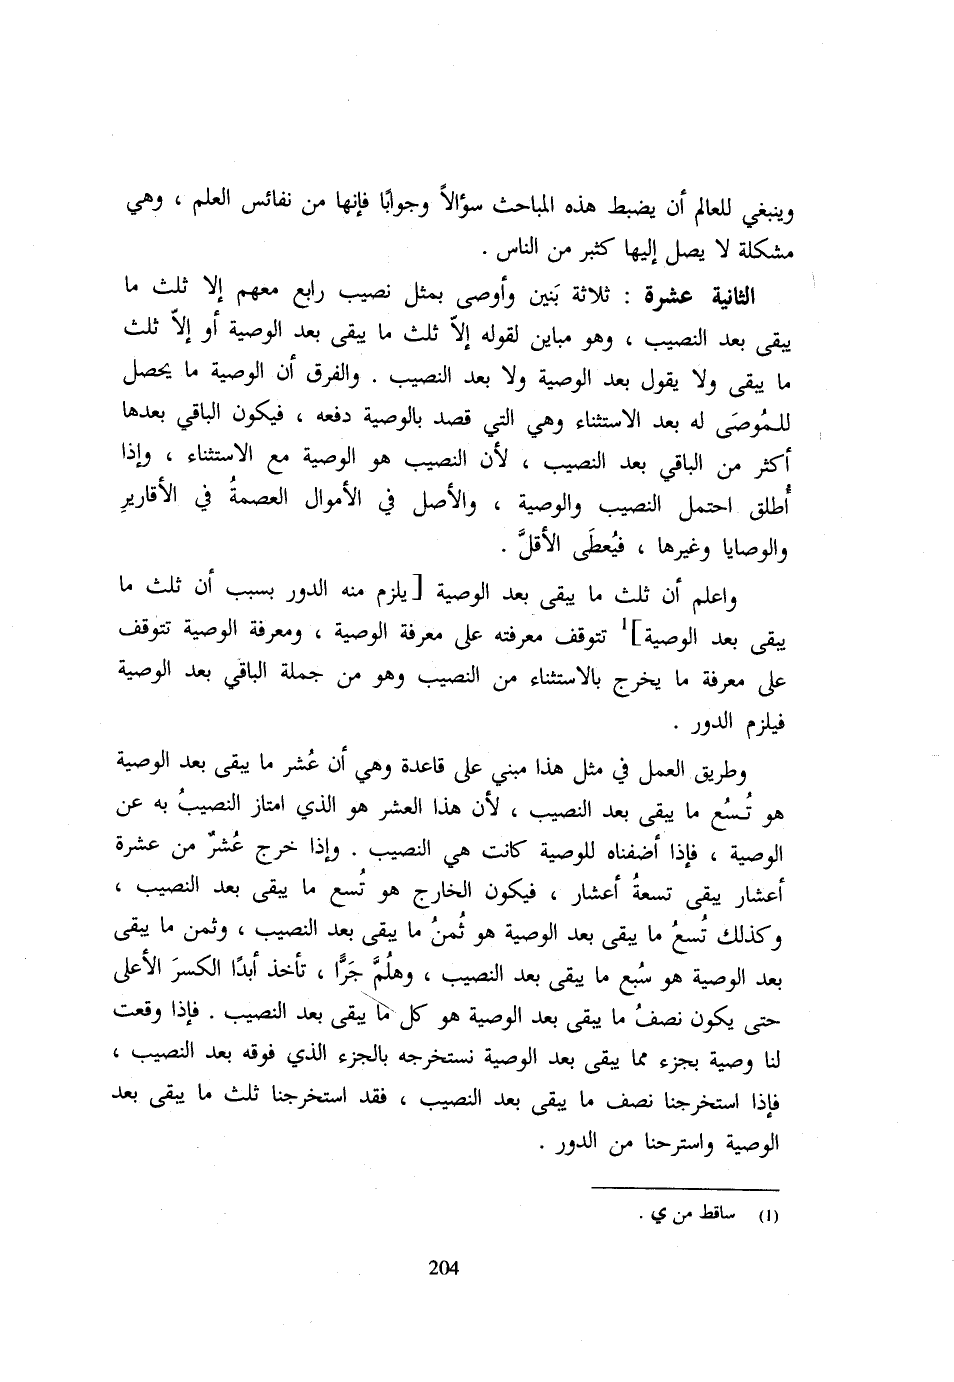 وينبغي للعالم أن يضبط هذه المباحث سؤالاً وجوابًا فإنها من نفائس العلم ، وهي
مشكلة لا يصل إليها كثير من الناس .
الثانية عشرة : ثلاثة بَنين وأوصى بمثل نصيب رابع معهم إلا ثلث ما
يبقى بعد النصيب ، وهو مباين لقوله إلاّ ثلث ما يبقى بعد الوصية أو إلاّ ثلث
ما يبقى ولا يقول بعد الوصية ولا بعد النصيب . والفرق أن الوصية ما يحصل
للـمُوصَى له بعد الاستثناء وهي التي قصد بالوصية دفعه ، فيكون الباقي بعدها
أكثر من الباقي بعد النصيب ، لأن النصيب هو الوصية مع الاستثناء ، وإذا
أُطلق احتمل النصيب والوصية ، والأصل في الأموال العصمةُ في الأقاريرِ
والوصايا وغيرها ، فيُعطَى الأقلَّ .
واعلم أن ثلث ما يبقى بعد الوصية [يلزم منه الدور بسبب أن ثلث ما
يبقى بعد الوصية]1 تتوقف معرفته على معرفة الوصية ، ومعرفة الوصية تتوقف
على معرفة ما يخرج بالاستثناء من النصيب وهو من جملة الباقي بعد الوصية
فيلزم الدور .
وطريق العمل في مثل هذا مبني على قاعدة وهي أن عُشر ما يبقى بعد الوصية
هو تُسُع ما يبقى بعد النصيب ، لأن هذا العشر هو الذي امتاز النصيبُ به عن
الوصية ، فإذا أضفناه للوصية كانت هي النصيب . وإذا خرج عُشرٌ من عشرة
أعشار يبقى تسعةُ أعشار ، فيكون الخارج هو تُسع ما يبقى بعد النصيب ،
وكذلك تُسعُ ما يبقى بعد الوصية هو ثُمنُ ما يبقى بعد النصيب ، وثمن ما يبقى
بعد الوصية هو سُبع ما يبقى بعد النصيب ، وهلُمَّ جَرًّا ، تأخذ أبدًا الكسرَ الأعلى
حتى يكون نصفُ ما يبقى بعد الوصية هو كل ما يبقى بعد النصيب . فإذا وقعت
لنا وصية بجزء مما يبقى بعد الوصية نستخرجه بالجزء الذي فوقه بعد النصيب ،
فإذا استخرجنا نصف ما يبقى بعد النصيب ، فقد استخرجنا ثلث ما يبقى بعد
الوصية واسترحنا من الدور .
(1) ساقط من ي .
204